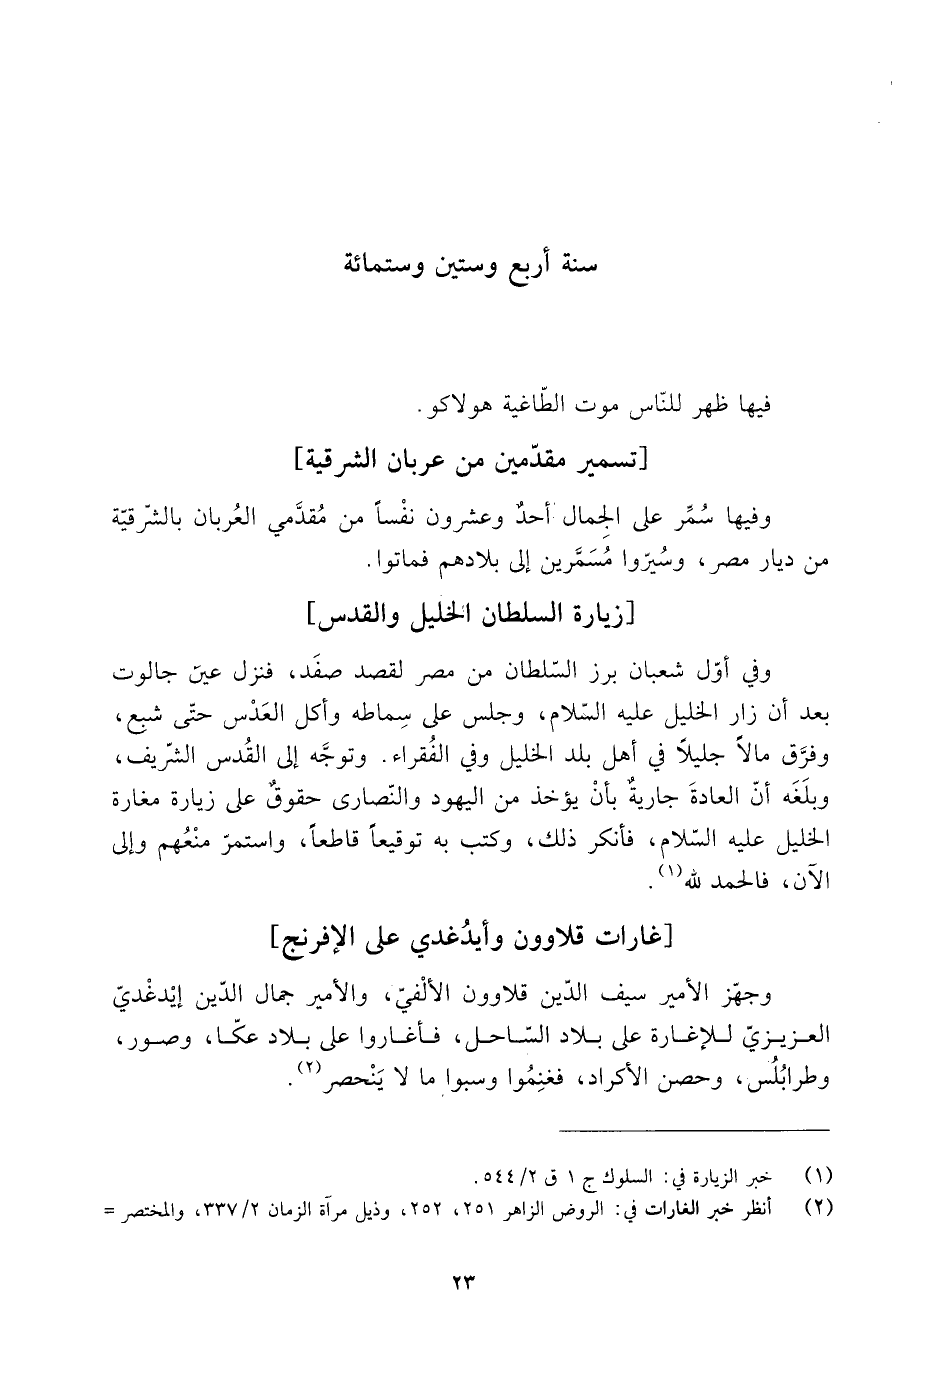 سنة أربع وستين وستمائة
فيها ظهر للنّاس موت الطّاغية هولاكو.
[تسمير مقدّمين من عربان الشرقية]
وفيها سُمِّر على الجِمال أحدٌ وعشرون نفْساً من مُقدَّمي العُربان بالشّرقيّة
من ديار مصر، وسُيّروا مُسَمَّرين إلى بلادهم فماتوا.
[زيارة السلطان الخليل والقدس]
وفي أوّل شعبان برز السّلطان من مصر لقصد صفَد، فنزل عينَ جالوت
بعد أن زار الخليل عليه السّلام، وجلس على سِماطه وأكل العَدْس حتّى شبِع،
وفرَّق مالاً جليلاً في أهل بلد الخليل وفي الفُقراء. وتوجَّه إلى القُدس الشّريف،
وبلَغَه أنّ العادةَ جاريةٌ بأنْ يؤخذ من اليهود والنّصارى حقوقٌ على زيارة مغارة
الخليل عليه السّلام، فأنكر ذلك، وكتب به توقيعاً قاطعاً، واستمرّ منْعُهم وإلى
الآن، فالحمد لله(١).
[غارات قلاوون وأيدُغدي على الإفرنج]
وجهّز الأمير سيف الدّين قلاوون الألْفيّ، والأمير جمال الدّين إيْدغْديّ
العزيزيّ للإغارة على بلاد السّاحل، فأغاروا على بلاد عكّا، وصور،
وطرابُلُس، وحصن الأكراد، فغنِمُوا وسبوا ما لا يَنْحصر(٢).
(١) خبر الزيارة في: السلوك ج ١ ق ٢/ ٥٤٤.
(٢) أنظر خبر الغارات في: الروض الزاهر ٢٥١، ٢٥٢، وذيل مرآة الزمان ٢/ ٣٣٧، والمختصر =
٢٣